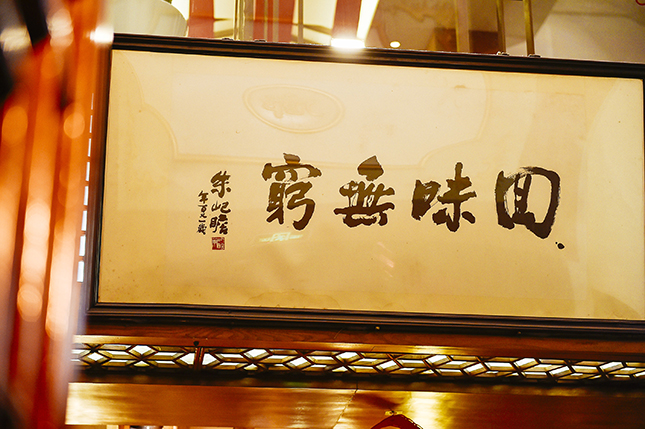 回味無窮
朱屺瞻
年百又一歲